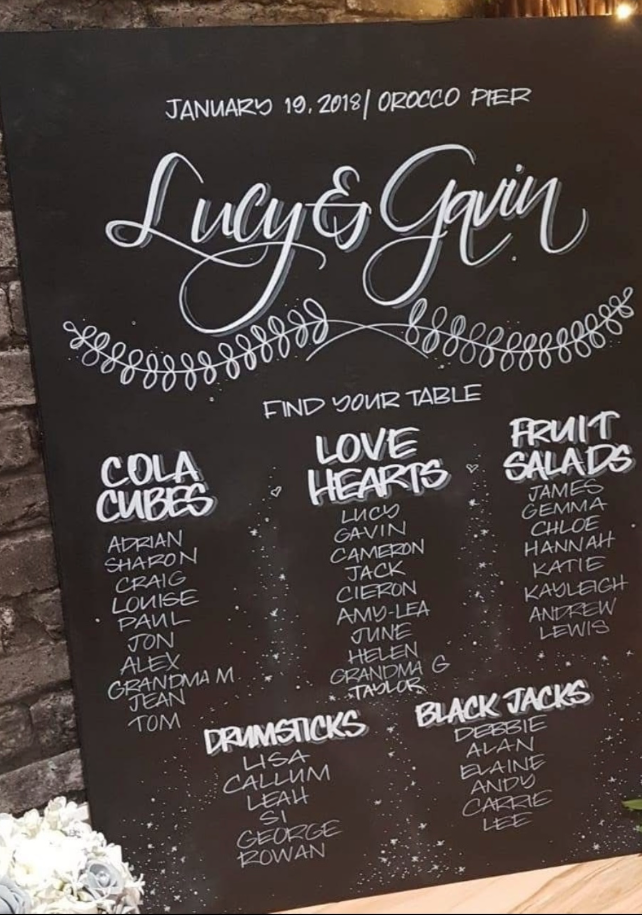 JANUARY 19, 2018 | OROCCO PIER
Lucy & Gavin
FIND YOUR TABLE
COLA
CUBES
ADRIAN
SHARON
CRAIG
LOUISE
PAUL
JON
ALEX
GRANDMA M
JEAN
TOM
LOVE
HEARTS
LUCY
GAVIN
CAMERON
JACK
CIERON
AMY-LEA
JUNE
HELEN
GRANDMA G
TAYLOR
FRUIT
SALADS
JAMES
GEMMA
CHLOE
HANNAH
KATIE
KAYLEIGH
ANDREW
LEWIS
DRUMSTICKS
LISA
CALLUM
LEAH
SI
GEORGE
ROWAN
BLACK JACKS
DEBBIE
ALAN
ELAINE
ANDY
CARRIE
LEE